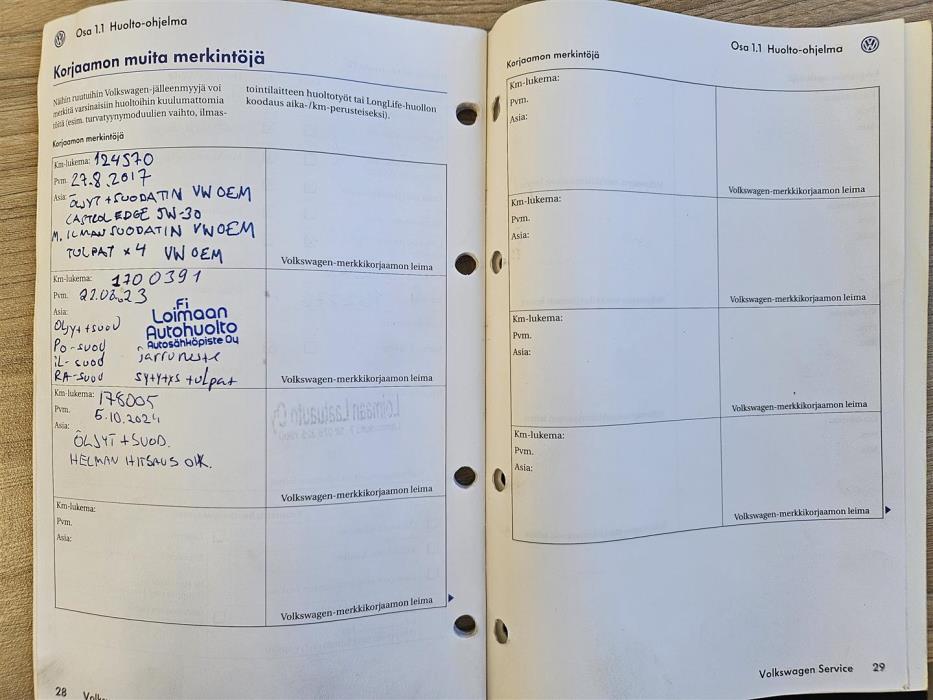 Osa 1.1 Huolto-ohjelma
Korjaamon muita merkintöjä
Näihin ruutuihin Volkswagen-jälleenmyyjä voi
merkitä varsinaisiin huoltoihin kuulumattomia
töitä (esim. turvatyynymoduulien vaihto, ilmas-
tointilaitteen huoltotyöt tai LongLife-huollon
koodaus aika-/km-perusteiseksi).
Korjaamon merkintöjä
Km-lukema: 124570
Pvm. 27.8.2017
Asia: ÖLJYT + SUODATIN VW OEM
CASTROL EDGE 5W-30
M. ILMANSUODATIN VW OEM
TULPAT x 4 VW OEM
Volkswagen-merkkikorjaamon leima
Km-lukema: 1700391
Pvm. 22.02.23
Asia:
.Fi
Loimaan
Autohuolto
Autosähköpiste Oy
ÖLJyt +suod
Po-suod
iL-suod
RA-suod
jarruneste
sytytys tulpat
Volkswagen-merkkikorjaamon leima
Km-lukema: 178005
Pvm. 5.10.2024
Asia:
ÖLJYT + SUOD.
HELMAN HITSAUS OIK.
Loimaan Laatuauto Oy
Volkswagen-merkkikorjaamon leima
Km-lukema:
Pvm.
Asia:
Volkswagen-merkkikorjaamon leima
28
Osa 1.1 Huolto-ohjelma
Korjaamon merkintöjä
Km-lukema:
Pvm.
Asia:
Volkswagen-merkkikorjaamon leima
Km-lukema:
Pvm.
Asia:
Volkswagen-merkkikorjaamon leima
Km-lukema:
Pvm.
Asia:
Volkswagen-merkkikorjaamon leima
Km-lukema:
Pvm.
Asia:
Volkswagen-merkkikorjaamon leima
Volkswagen Service 29